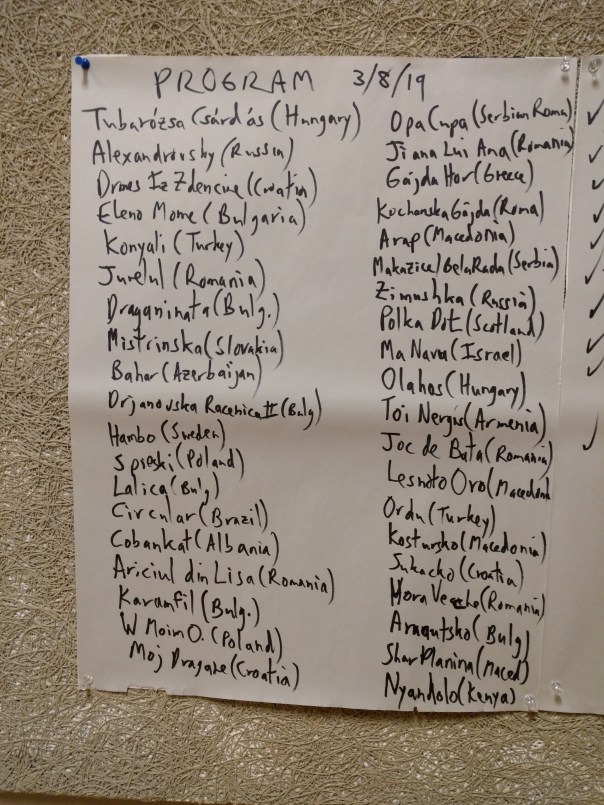 PROGRAM 3/8/19
Tubarózsa Csárdás (Hungary)
Alexandrovsky (Russia)
Drmes Iz Zdencine (Croatia)
Eleno Mome (Bulgaria)
Konyali (Turkey)
Jurelul (Romania)
Draganinata (Bulg.)
Mistrinska (Slovakia)
Bahar (Azerbaijan)
Drjanovska Racenica II (Bulg)
Hambo (Sweden)
(Poland)
Lalica (Bulg)
Circular (Brazil)
Cobankat (Albania)
Ariciul din Lisa (Romania)
Karamfil (Bulg.)
W Moim O. (Poland)
Moj Dragane (Croatia)
Opa Cupa (Serbian Roma)
Jiana Lui Ana (Romania)
Gajda Hor (Greece)
Kuchanska Gajda (Roma)
Arap (Macedonia)
Makazice/Bela Rada (Serbia)
Zimushka (Russia)
Polka Dot (Scotland)
Ma Navu (Israel)
Olahos (Hungary)
Toi Nergis (Armenia)
Joc de Bata (Romania)
Lesnoto Oro (Macedoni
Ordu (Turkey)
Kostursko (Macedonia)
Sukacko (Croatia)
Hora Veche (Romania)
Aragutsko (Bulg)
Shar Planina (Maced)
Nyandolo (Kenya)